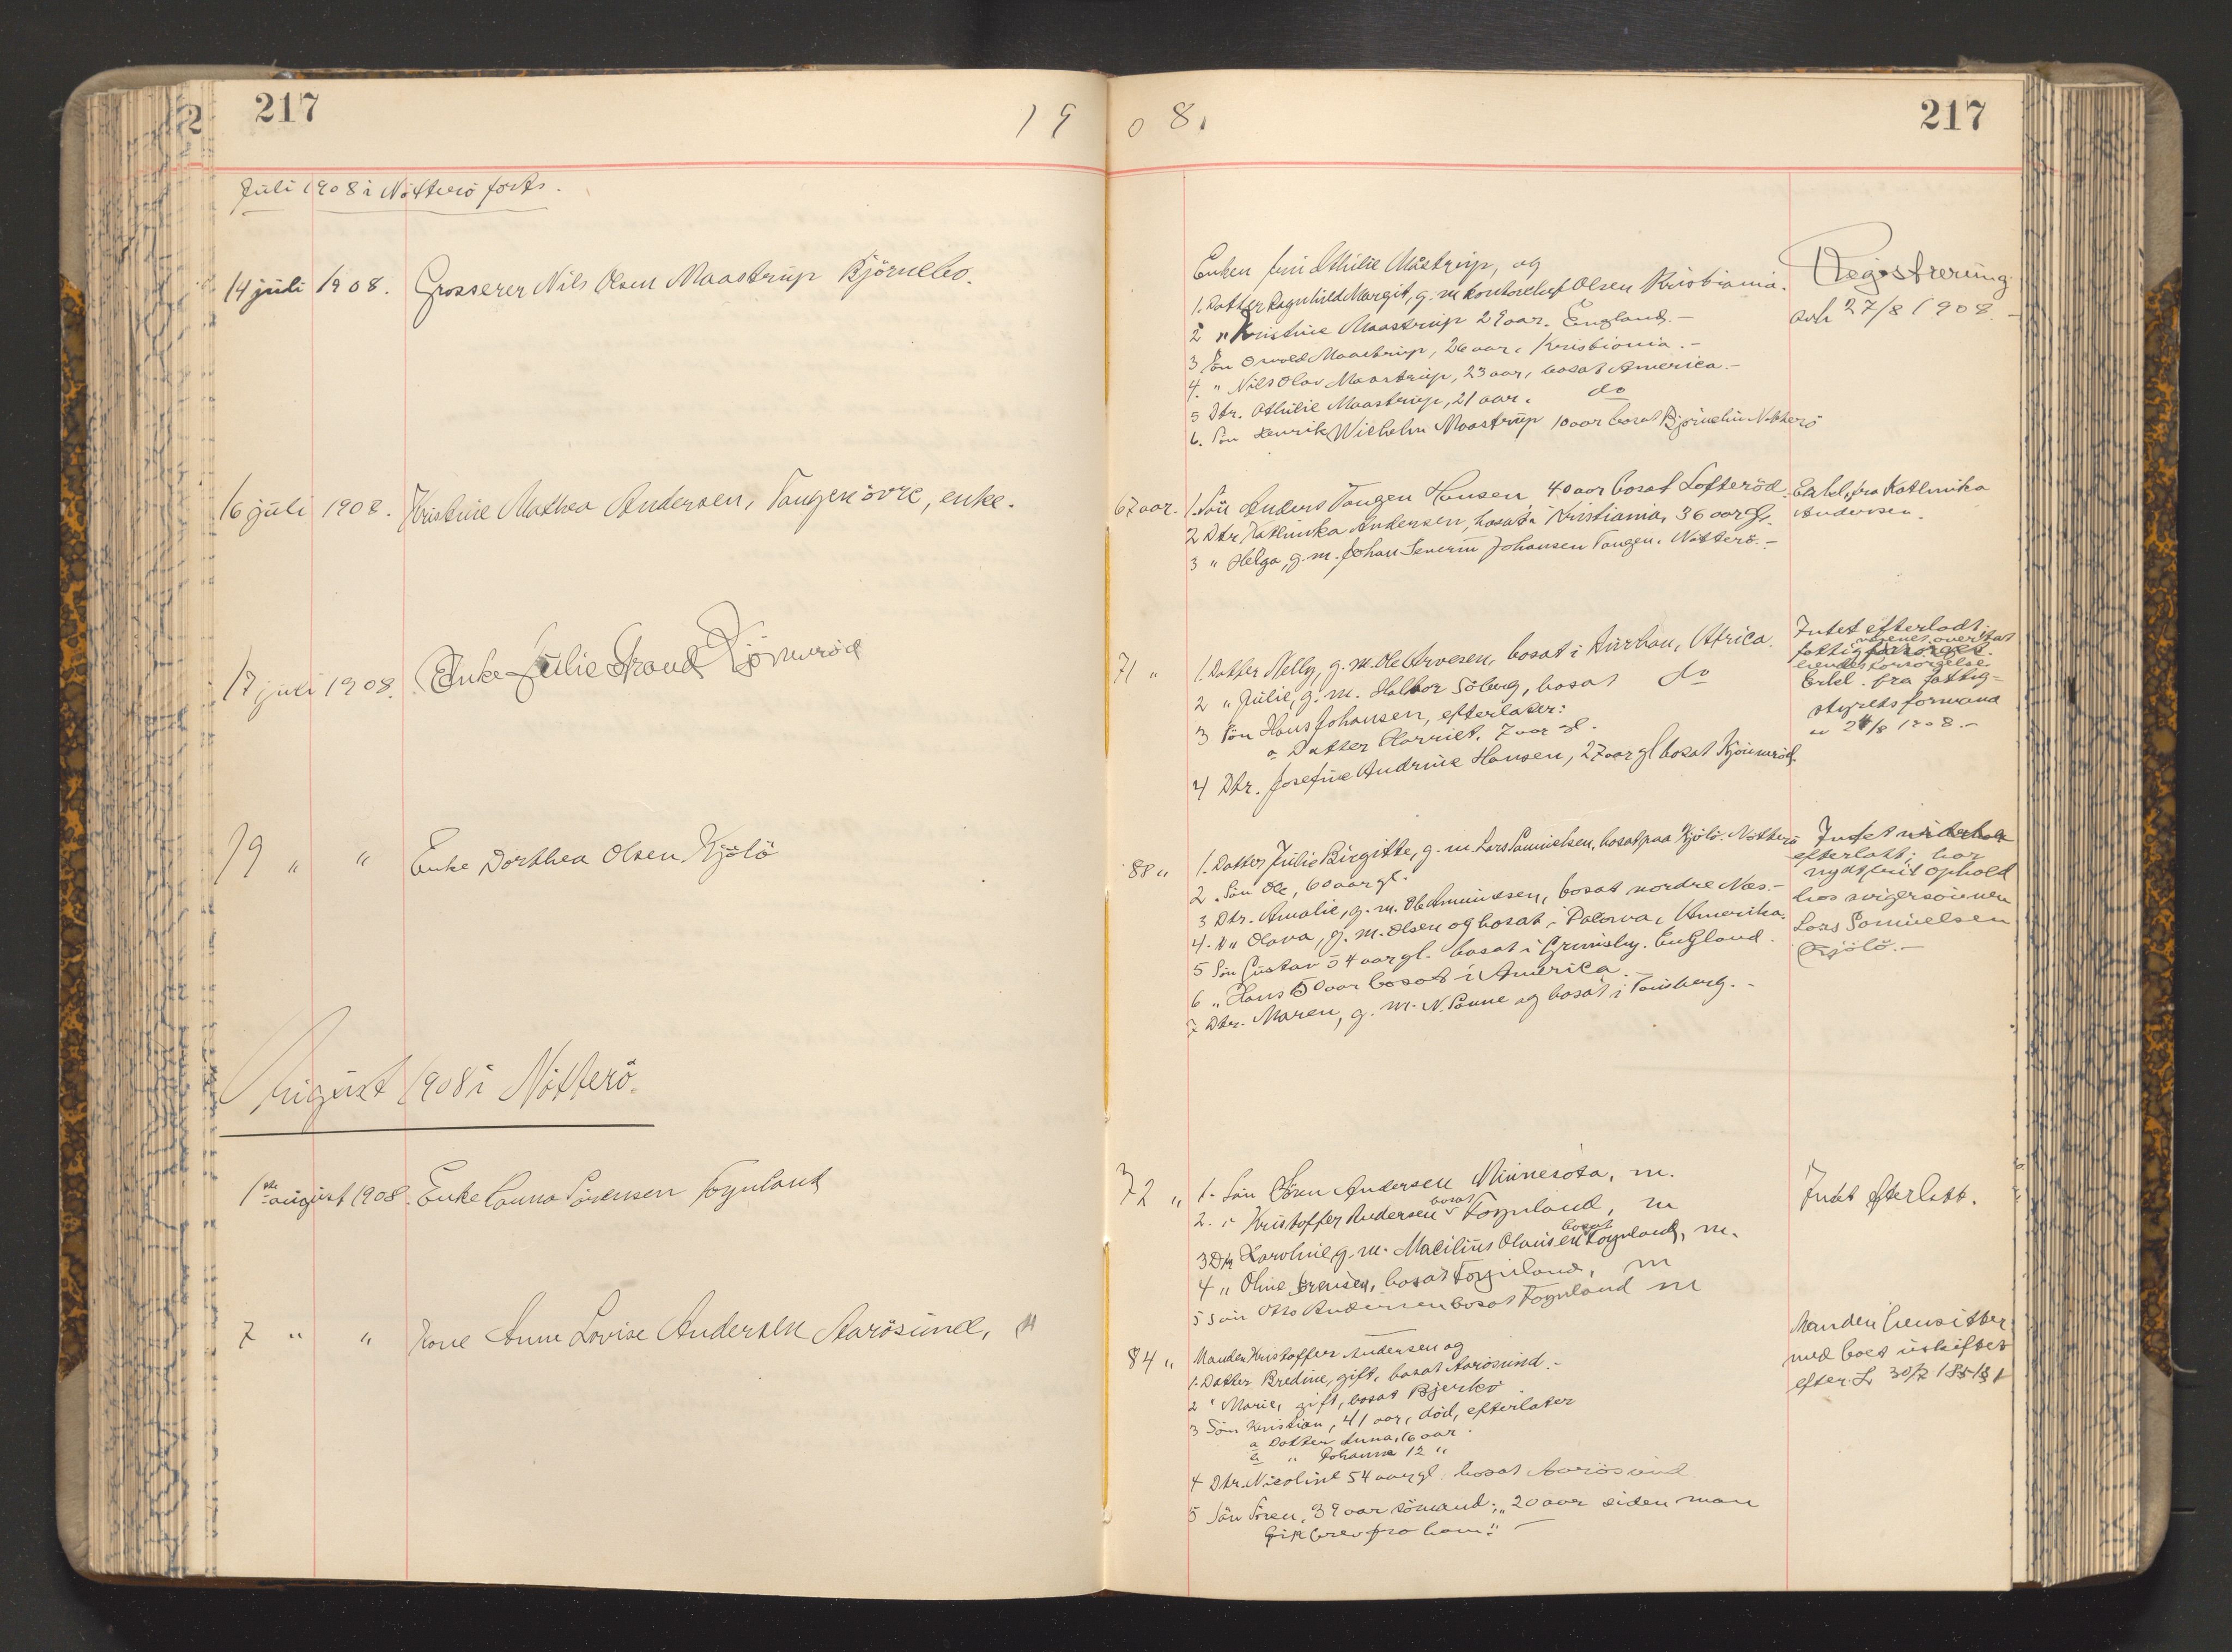 217
19
08,
217
Juli 1908 i Nötterö forts.
14 juli 1908. Grosserer Nils Olsen Maastrup Bjørnebo.
Enken fru Athilie Mastrup, og
1. Datter Ragnhild Margit, g. m kontorchef Olsen Kristiania.
2 " Kristine Maastrup 29 aar. England.-
3 Sön Osvald Maastrup, 26 aar, Kristiania.-
4. " Nils Olav Maastrup, 23 aar, bosat America.-
5 Dtr. Othilie Maastrup, 21 aar. do
6. Sön Henrik Wilhelm Maastrup 10 aar bosat Nötterö
Registrering
avh 27/8 1908.-
16 juli 1908. Kristine Mathea Andersen, Tangen övre, enke.
67 aar. 1. Sön Anders Tangen Hansen 40 aar bosat Lofteröd.
2 Dtr. Kathinka Andersen, bosat i Kristiania, 36 aar gl.
3 " Helga, g. m. Johan Severin Johansen Tangen, Nötterö.-
Erkl. fra Kathinka
Andersen.
17 juli 1908. Enke Julie Strand Kjönneröd
71 " 1. Datter Nelly, g. m. Ole Arvesen, bosat i Durban, Africa.
2 " Julie, g. m. Halvor Söberg, bosat do
3 Sön Hans Johansen, efterlater:
a Datter Harriet, 7 aar gl.
4 Dtr. Josefine Andrine Hansen, 27 aar gl bosat Kjönneröd.
Intet efterladt.
hendes forsorgelse
Erkl. fra fattig-
styrets formand
24/8 1908.-
19 " " Enke Dorthea Olsen Kjölö
88 " 1. Datter Julie Birgitte, g. m. Lars Samuelsen, bosat paa Kjölö. Nötterö
2. Sön Ole, 60 aar gl.
3 Dtr. Amalie, g. m. Ole Amundsen, bosat nordre Næs.-
4. " Olava, g. m. Olsen og bosat i Amerika.
5 Sön Gustav 54 aar gl. bosat i Grimsby. England.
6 " Hans 50 aar bosat i America.-
7 Dtr. Maren, g. m. N. Sanne og bosat i Tönsberg.-
Intet
efterlatt; har
nydt frit ophold
hos svigersönnen
Lars Samuelsen
Kjölö.-
August 1908 i Nötterö.
1ste august 1908. Enke Sörensen Föynland
72 " 1. Sön Sören Andersen Minnesota, m.
2. " Kristoffer Andersen bosat Föynland, m
3 Dtr Karoline g. m. Olausen bosat Föynland, m.
4 " Oline Sörensen, bosat Föynland, m
5 Sön Otto Andersen bosat Föynland m
Intet efterlatt.
7 " " Kone Anne Lovise Andersen Aarösund,
84 " Manden Kristoffer Andersen og
1. Datter Bredine, gift, bosat Aarösund.-
2 " Marie, gift, bosat Bjerkö
3 Sön Kristian, 41 aar, död, efterlater
a Datter Anna, 16 aar.
b " Johanne 12 "
4 Dtr. Nicoline 54 aar gl. bosat Aarösund
5 Sön Sören, 39 aar sömand; "20 aar siden man
fik brev fra ham." -
Manden hensitter
med boet uskiftet
efter L 30/7 1851